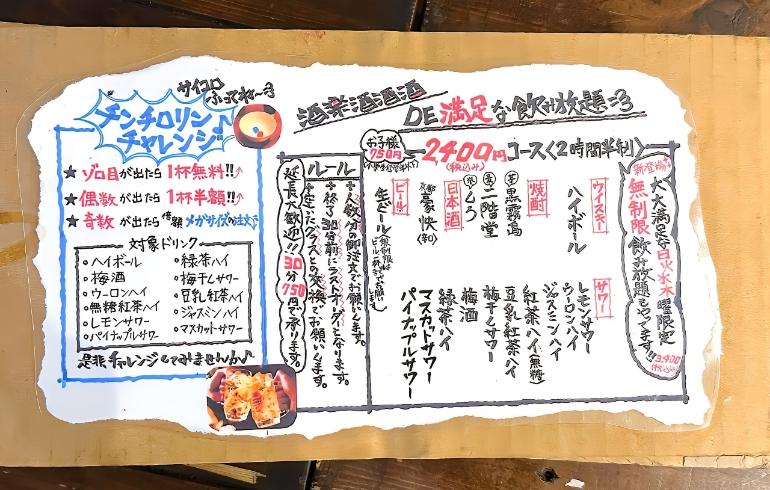 サイコロ
ふってね〜♪
チンチロリン♪
チャレンジ♪
★ゾロ目が出たら1杯無料!!
★偶数が出たら1杯半額!!
★奇数が出たら倍額メガサイズの注文♪
対象ドリンク
・ハイボール
・梅酒
・ウーロンハイ
・無糖紅茶ハイ
・レモンサワー
・パイナップルサワー
・緑茶ハイ
・梅干しサワー
・豆乳紅茶ハイ
・ジャスミンハイ
・マスカットサワー
是非チャレンジしてみませんか♪
酒楽酒酒酒
DE満足な飲み放題
お子様
750円
2400円
(税込み)
コース〈2時間半制〉
新登場
大大満足な日火水木曜限定
無制限飲み放題もやってます!!
3,400
(税込み)
ウイスキー
ハイボール
焼酎
芋 黒霧島
麦 二階堂
日本酒
豪快(和)
ビール
生ビール
サワー
レモンサワー
ウーロンハイ
ジャスミンハイ
紅茶ハイ(無糖)
豆乳紅茶ハイ
梅干しサワー
梅酒
緑茶ハイ
マスカットサワー
パイナップルサワー
ルール
・人数分の御注文でお願いします。
・終了30分前にラストオーダーとなります。
・空いたグラスとの交換でお願いします。
延長大歓迎!!30分750円で承ります。